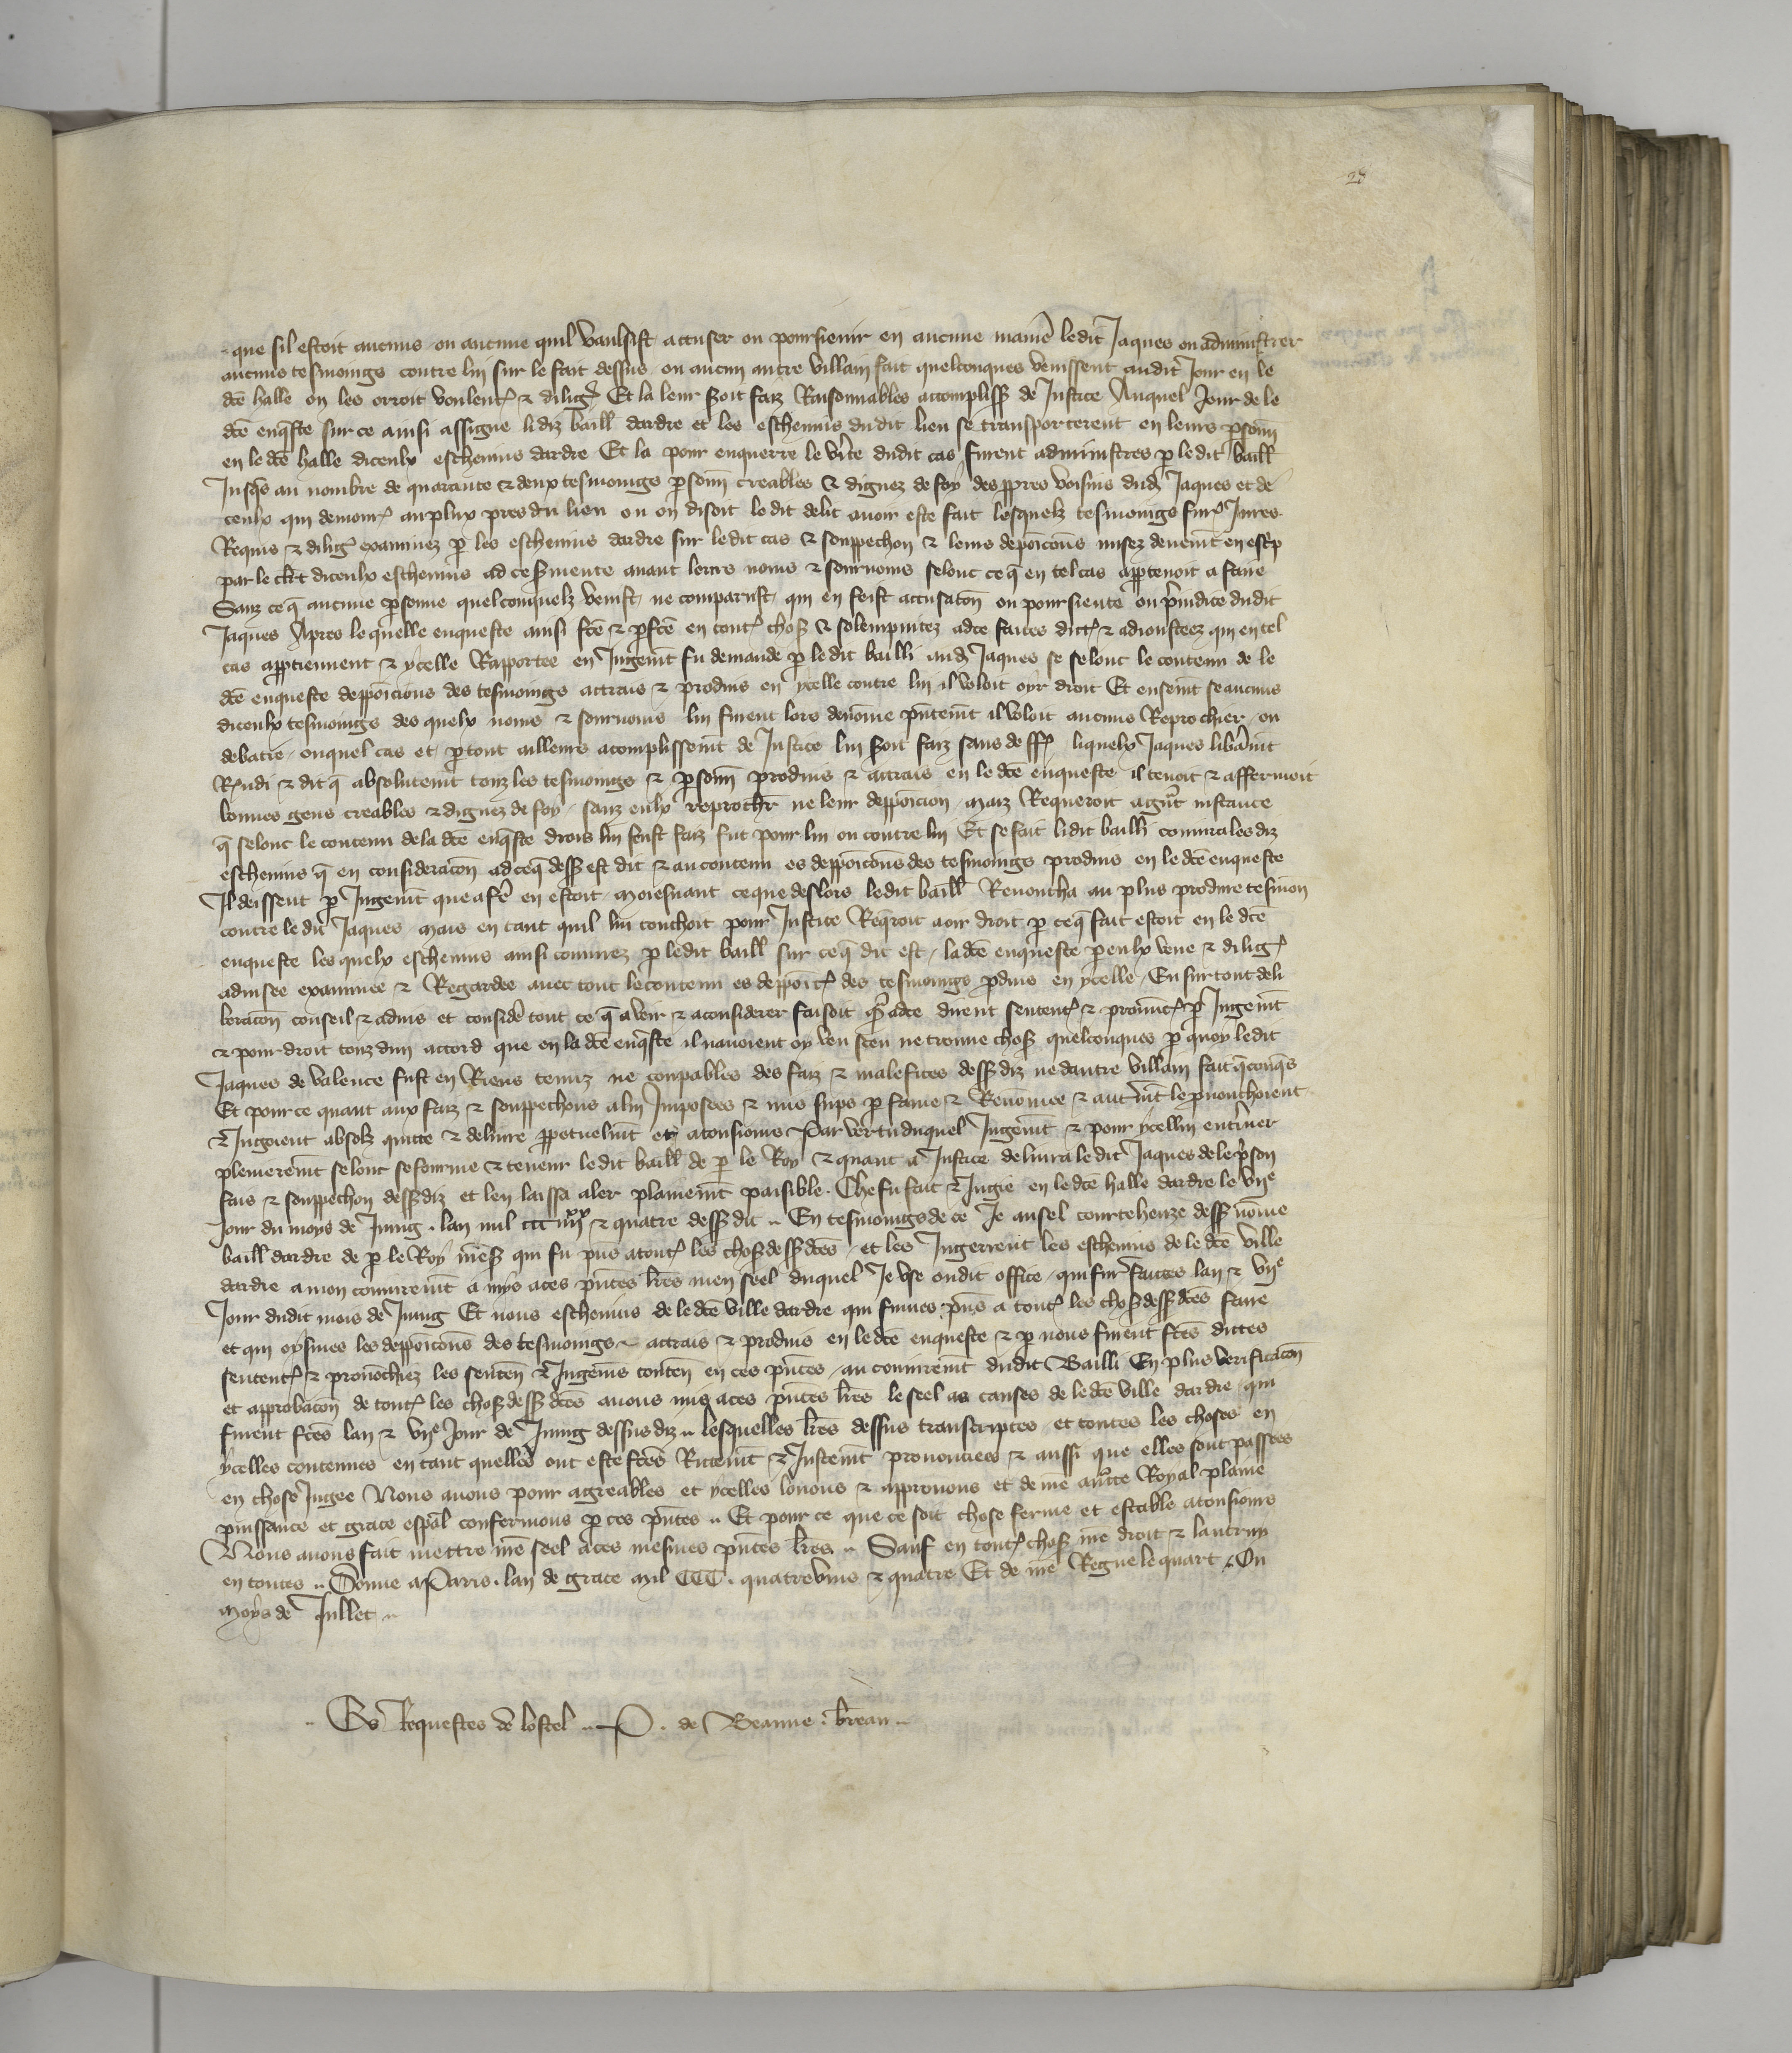 28
que sil estoit aucuns ou aucune quil vaulsist accuser ou poursieuir en aucune manie ledit Jaques ou administrer
aucuns tesmoings contre lui sur le fait dessus ou aucun autre villain fait quelconques venissent audit Jour en le
dce halle on les orroit voulent & dilig Et la leur seroit faiz Raisonnables accompliss de Justice Auquel Jour de le
dce enqste sur ce ainsi assigne lidiz baill dardre et les escheuins dudit lieu se transporterent en leurs psonn
en le dce halle diceulx escheuins dardre Et la pour enquerre le vite dudit cas furent administres p ledit baill
Jusqs au nombre de quarante & deux tesmoings psonn creables & dignez de foy des ppres voisins dud Jaques et de
ceulx qui demour au plux pres du lieu ou on disoit le dit delit auoir este fait lesquelz tesmoings fur Jures
Requis & dilig examinez p les escheuins dardre sur ledit cas & souppechon & leurs depoicons misez deuemt en escp
par le clet diceulx escheuins ad ce sermente auant leurs noms & sournoms selonc ce q en tel cas apptenoit a faire
Sanz ce q aucune psonne quelconquelz venist ne comparust qui en feist accusacon ou poursieute ou piudice dudit
Jaques Apres lequelle enqueste ainsi fce & pfce en tout chos & solempnitez adce faites dict & adiousteez qui en tel
cas apptiennent & ycelle Rapportee en Jugemt fu demande p le dit bailli aud Jaques se selonc le contenu de le
dce enqueste depposicions des tesmoings attrais & produis en ycelle contre lui il voloit oyr droit Et ensemt se aucuns
diceulx tesmoings des quelx noms & sournoms lui furent lors denome pntemt il voloit aucuns Reprochier ou
debatre ouquel cas et ptout ailleurs acomplissemt de Justice lui seroit faiz sans deff liquelx Jaques libamt
Rndi & dit q absolutemt touz les tesmoings & psonn produis & attrais en le dce enqueste il tenoit & affermoit
bonnes gens creables & dignez de foy sanz eulx reprochr ne leur depposicion maiz Requeroit a gnt instance
q selonc le contenu de la dce enqste drois lui feust faiz fut pour lui ou contre lui Et se fait lidit bailli coniura les diz
escheuins q en consideracon ad ce q dess est dit & au contenu es depposicons des tesmoings produis en le dce enqueste
Il deissent p Jugemt que a fe en estoit moiennant ce que deslors ledit baill Renoncha au plus produire tesmon
contre le dit Jaques mais en tant quil lui touchoit pour Justice Reqroit auoir droit p ce q fait estoit en le dce
enqueste les quelx escheuins ainsi coniurez p ledit baill sur ce q dit est la dce enqueste p eulx veue & dilig
aduisee examinee & Regardee auec tout le contenu es depposit des tesmoings pduis en ycelle Eu sur tout deli
beracon conseil & aduis et considere tout ce q a veir & a considerer faisoit adce dirent sentent & pronunt p Jugemt
& pour droit touz dun accord que en la dce enqste il nauoient oy veu sceu ne trouue chos quelconques p quoy ledit
Jaques de valence fust en Riens tenuz ne coupables des faiz & malefices dess diz ne dautre villain fait qconqs
Et pour ce quant aux faiz & souppechons a lui Imposees & mis sups p fame & Renomee & autmt le pnonchoient
& Jugoient absolz quitte & deliure ppetuelmt et a tousiours Par vertu duquel Jugemt & pour ycellui enteriner
plenieremt selonc se fourme & teneur le dit baill de p le Roy & quant a Justice deliura le dit Jaques de le pson
fais & souppechon dessdiz et len laissa aler plainemt paisible Che fu fait & Jugie en le dce halle dardre le vije
Jour du moys de Juing lan mil ccc iiijxx & quatre dess dit En tesmoings de ce Je ansel courteheuze dess nome
baill dardre de p le Roy nress qui fu pns a tout les chos dess dces et les Jugerent les escheuins de le dce ville
dardre a mon coniuremt a mys a ces pntes lres men seel duquel Je vse oudit office qui fur faites lan & vije
Jour dudit mois de Juing Et nous escheuins de le dce ville dardre qui fumes pns a tout les chos dess dces faire
et qui oysmes les depposicons des tesmoings attrais & produis en le dce enqueste & p nous furent fces dittes
sentent & pronochiez les senten & Jugems conten en ces pntes au coniuremt dudit Bailli En plus verificacon
et approbacon de tout les chos dess dces auons mis a ces pntes lres le seel as causes de le dce ville dardre qui
furent fces lan & vije Jour de Juing dessus diz lesquelles lres dessus transcriptes et toutes les choses en
ycelles contenues en tant quelles ont este fces Rittemt & Justemt prononciees & aussi que elles sont passees
en chose Jugee Nous auons pour agreables et ycelles louons & approuons et de nre aucte Royal plaine
puissance et grace espal confermons p ces pntes Et pour ce que ce soit chose ferme et estable a tousiours
Nous auons fait mettre nre seel a ces mesmes pntes lres Sauf en tout chos nre droit & lautruy
en toutes Donne a Paris lan de grace mil CCC quatrevins & quatre Et de nre Regne le quart Ou
moys de Juillet
Es Requestes de lostel P. de Beaune brean